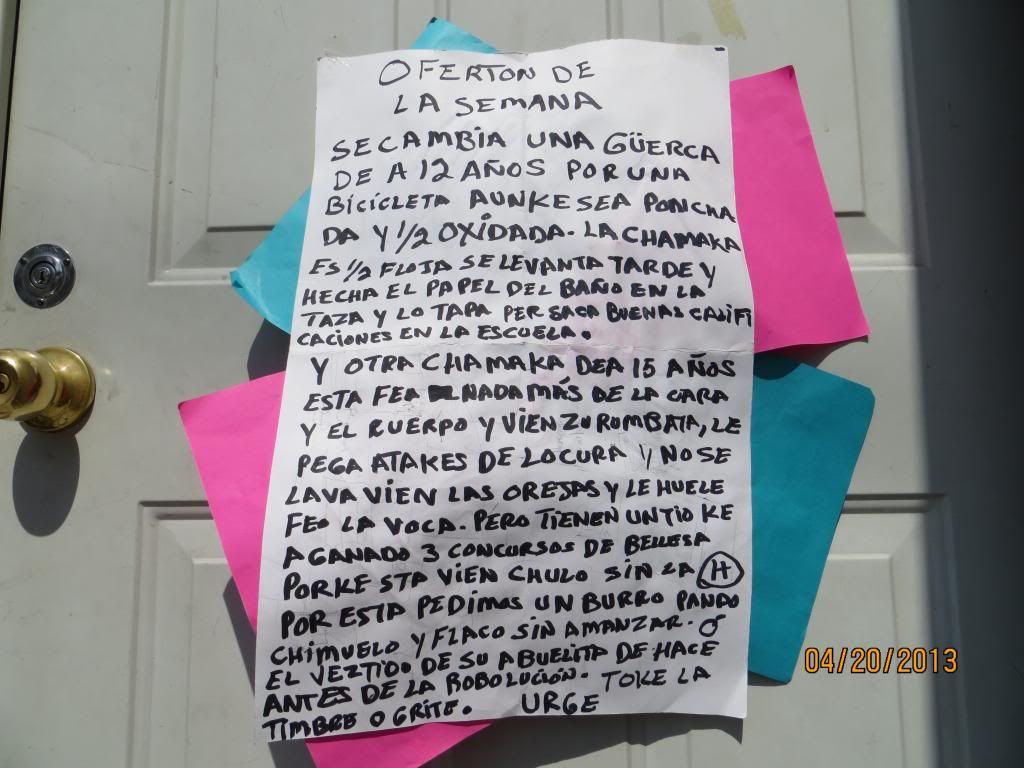 OFERTON DE
LA SEMANA
SE CAMBIA UNA GÜERCA
DE A 12 AÑOS POR UNA
BICICLETA AUNKE SEA PONCHA
DA Y 1/2 OXIDADA. LA CHAMAKA
ES 1/2 FLOJA SE LEVANTA TARDE Y
HECHA EL PAPEL DEL BAÑO EN LA
TAZA Y LO TAPA PER SACA BUENAS CALIFI
CACIONES EN LA ESCUELA.
Y OTRA CHAMAKA DEA 15 AÑOS
ESTA FEA NADA MÁS DE LA CARA
Y EL KUERPO Y VIEN ZURUMBATA, LE
PEGA ATAKES DE LOCURA Y NO SE
LAVA VIEN LAS OREJAS Y LE HUELE
FEO LA VOCA. PERO TIENEN UN TIO KE
A GANADO 3 CONCURSOS DE BELLESA
PORKE STA VIEN CHULO SIN LA H
POR ESTA PEDIMOS UN BURRO PANDO
CHIMUELO Y FLACO SIN AMANZAR. O
EL VEZTIDO DE SU ABUELITA DE HACE
ANTES DE LA ROBOLUCIÓN. TOKE LA
TIMBRE O GRITE. URGE
04/20/2013